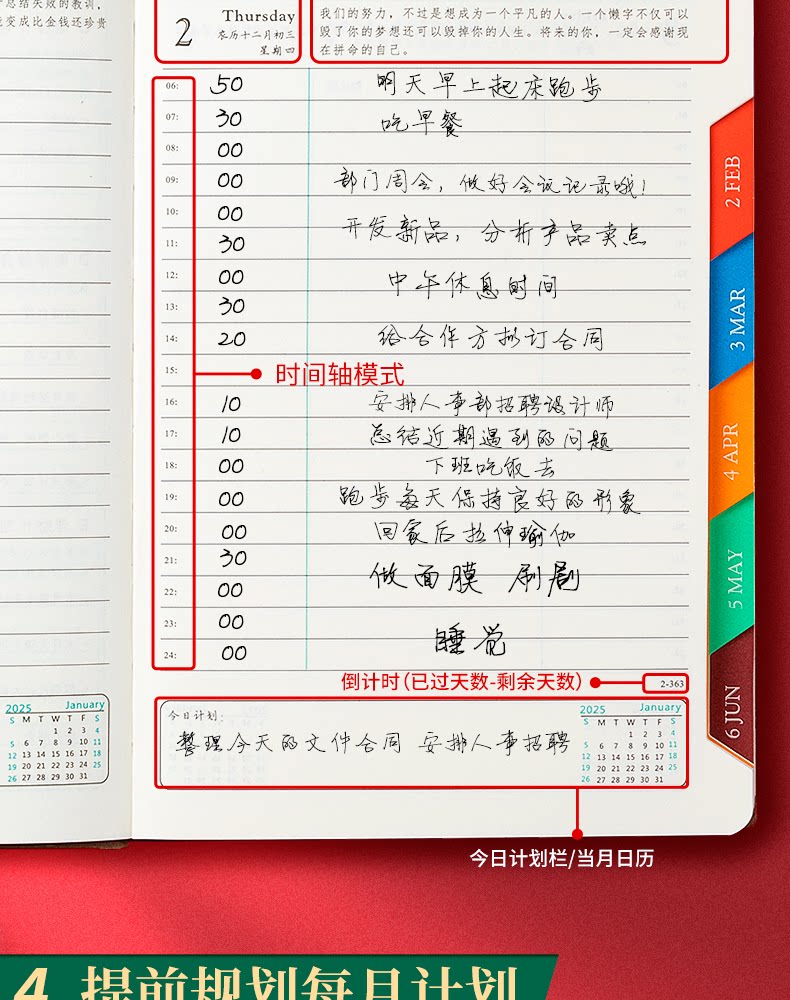 总结失败的教训,
变成比金钱还珍贵
2
Thursday
农历十二月初三
星期四
我们的努力,不过是想成为一个平凡的人。一个懒字不仅可以
毁了你的梦想还可以毁掉你的人生。将来的你,一定会感谢现
在拼命的自己。
06: 50 明天早上起床跑步
07: 30 吃早餐
08: 00
09: 00 部门周会,做好会议记录哦!
10: 00
开发新品,分析产品卖点
11: 30
12: 00 中午休息时间
13: 30
14: 20 给合作方拟订合同
15:
时间轴模式
16: 10 安排人事部招聘设计师
17: 10 总结近期遇到的问题
18: 00 下班吃饭去
19: 00 跑步每天保持良好的形象
20: 00 回家后拉伸瑜伽
21: 30
做面膜 刷剧
22: 00
23: 00
睡觉
24: 00
倒计时(已过天数-剩余天数)
2-363
今日计划:
整理今天的文件合同 安排人事招聘
2025 January
S M T W T F S
1 2 3 4
5 6 7 8 9 10 11
12 13 14 15 16 17 18
19 20 21 22 23 24 25
26 27 28 29 30 31
2025 January
S M T W T F S
1 2 3 4
5 6 7 8 9 10 11
12 13 14 15 16 17 18
19 20 21 22 23 24 25
26 27 28 29 30 31
2 FEB
3 MAR
4 APR
5 MAY
6 JUN
今日计划栏/当月日历
4 提前规划每月计划